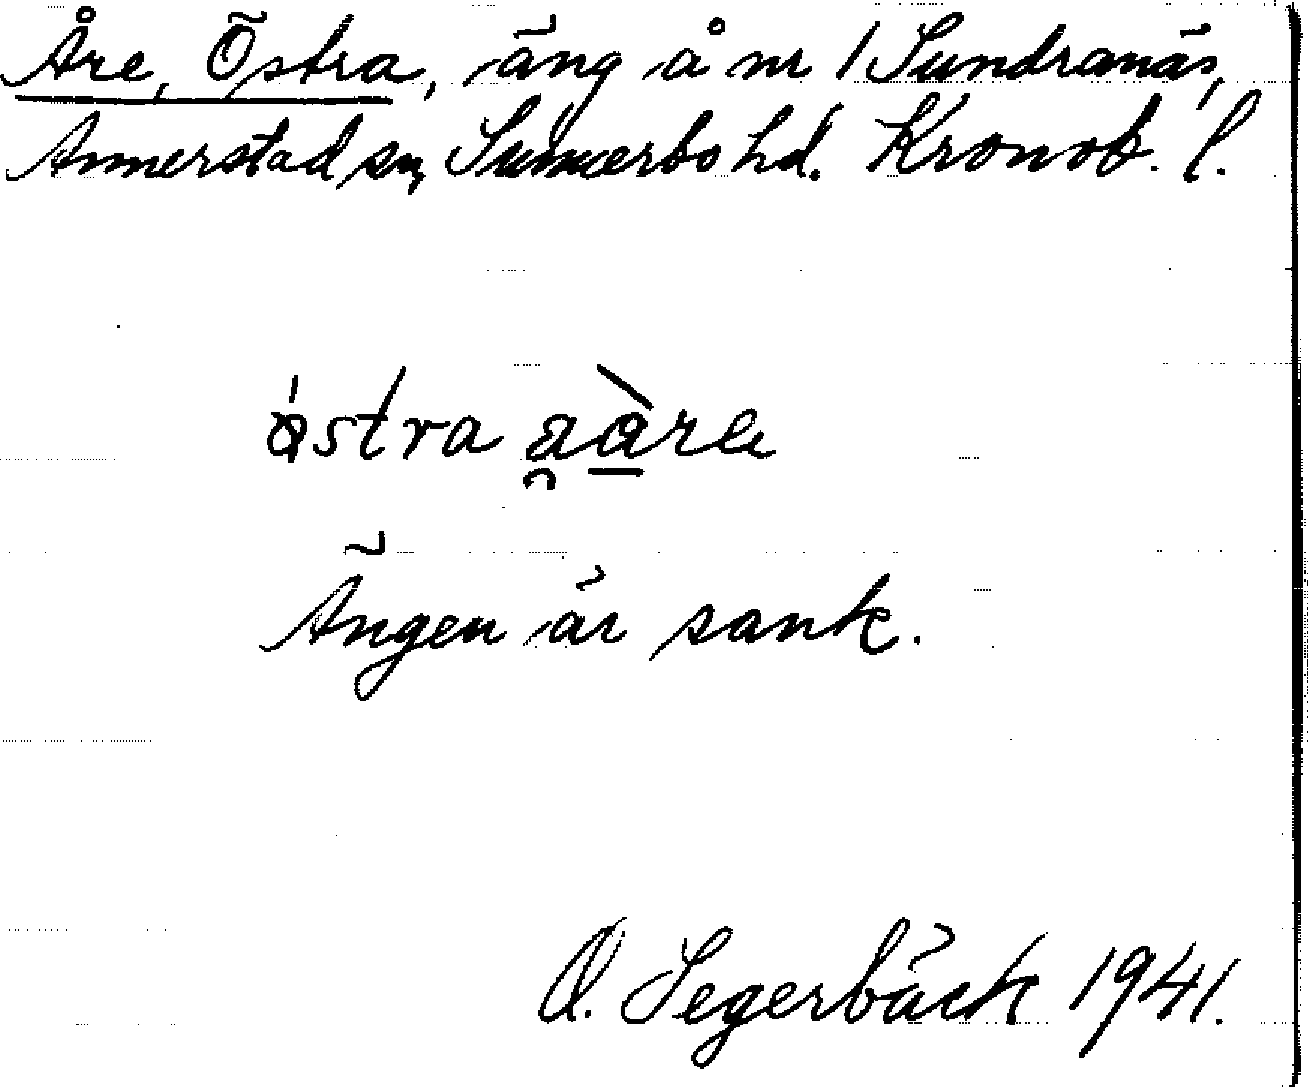 Åre, Östra, äng å nr 1 Sundranäs,
Annerstad sn, Sunnerbo hd. Kronob. l.
östra a̯àre
Ängen är sank.
O. Segerbäck 1941.